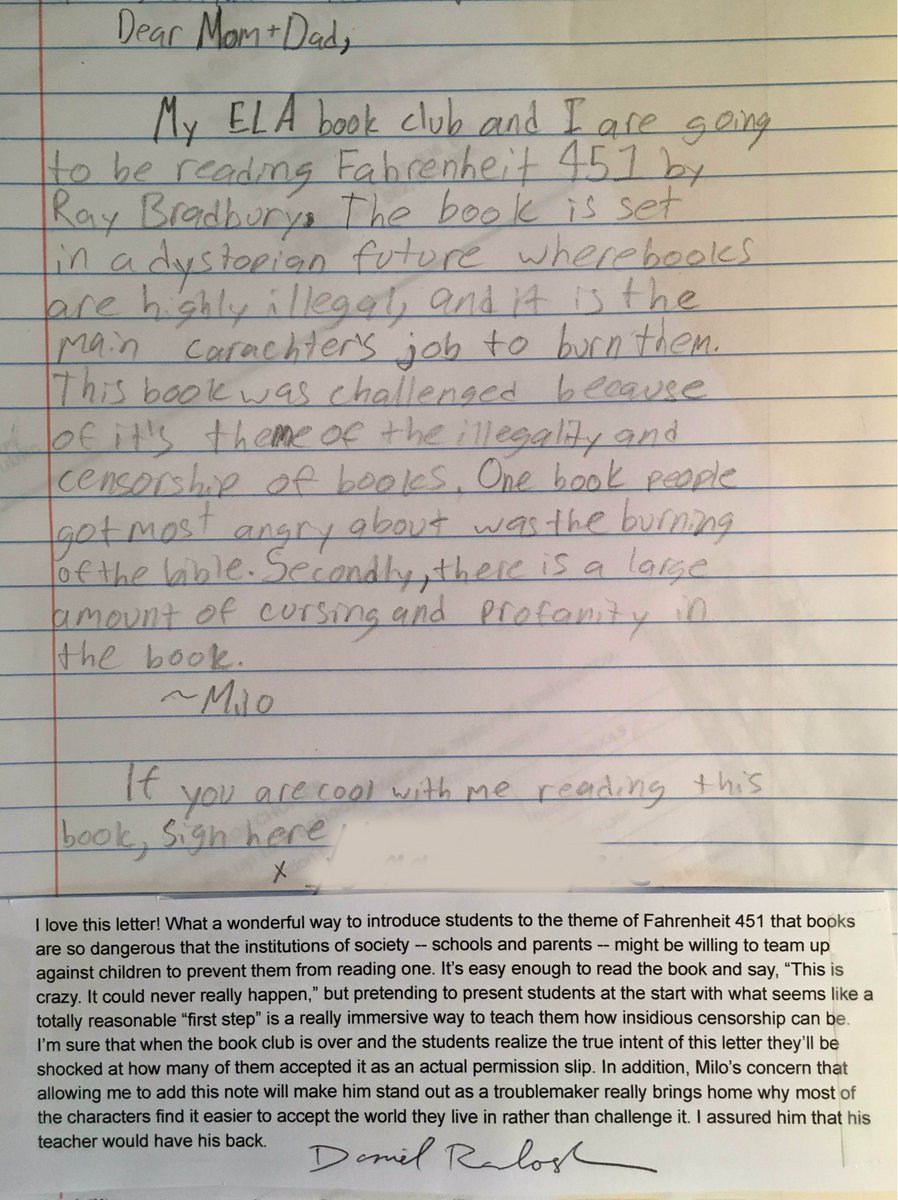 Dear Mom+Dad,
My ELA book club and I are going
to be reading Fahrenheit 451 by
Ray Bradbury. The book is set
in a dystopian future where books
are highly illegal, and it is the
main carachter's job to burn them.
This book was challenged because
of it's theme of the illegality and
censorship of books. One book people
got most angry about was the burning
of the bible. Secondly, there is a large
amount of cursing and profanity in
the book.
~Milo
If you are cool with me reading this
book, sign here
x
I love this letter! What a wonderful way to introduce students to the theme of Fahrenheit 451 that books
are so dangerous that the institutions of society -- schools and parents -- might be willing to team up
against children to prevent them from reading one. It's easy enough to read the book and say, “This is
crazy. It could never really happen,” but pretending to present students at the start with what seems like a
totally reasonable “first step” is a really immersive way to teach them how insidious censorship can be.
I'm sure that when the book club is over and the students realize the true intent of this letter they'll be
shocked at how many of them accepted it as an actual permission slip. In addition, Milo's concern that
allowing me to add this note will make him stand out as a troublemaker really brings home why most of
the characters find it easier to accept the world they live in rather than challenge it. I assured him that his
teacher would have his back.
Daniel